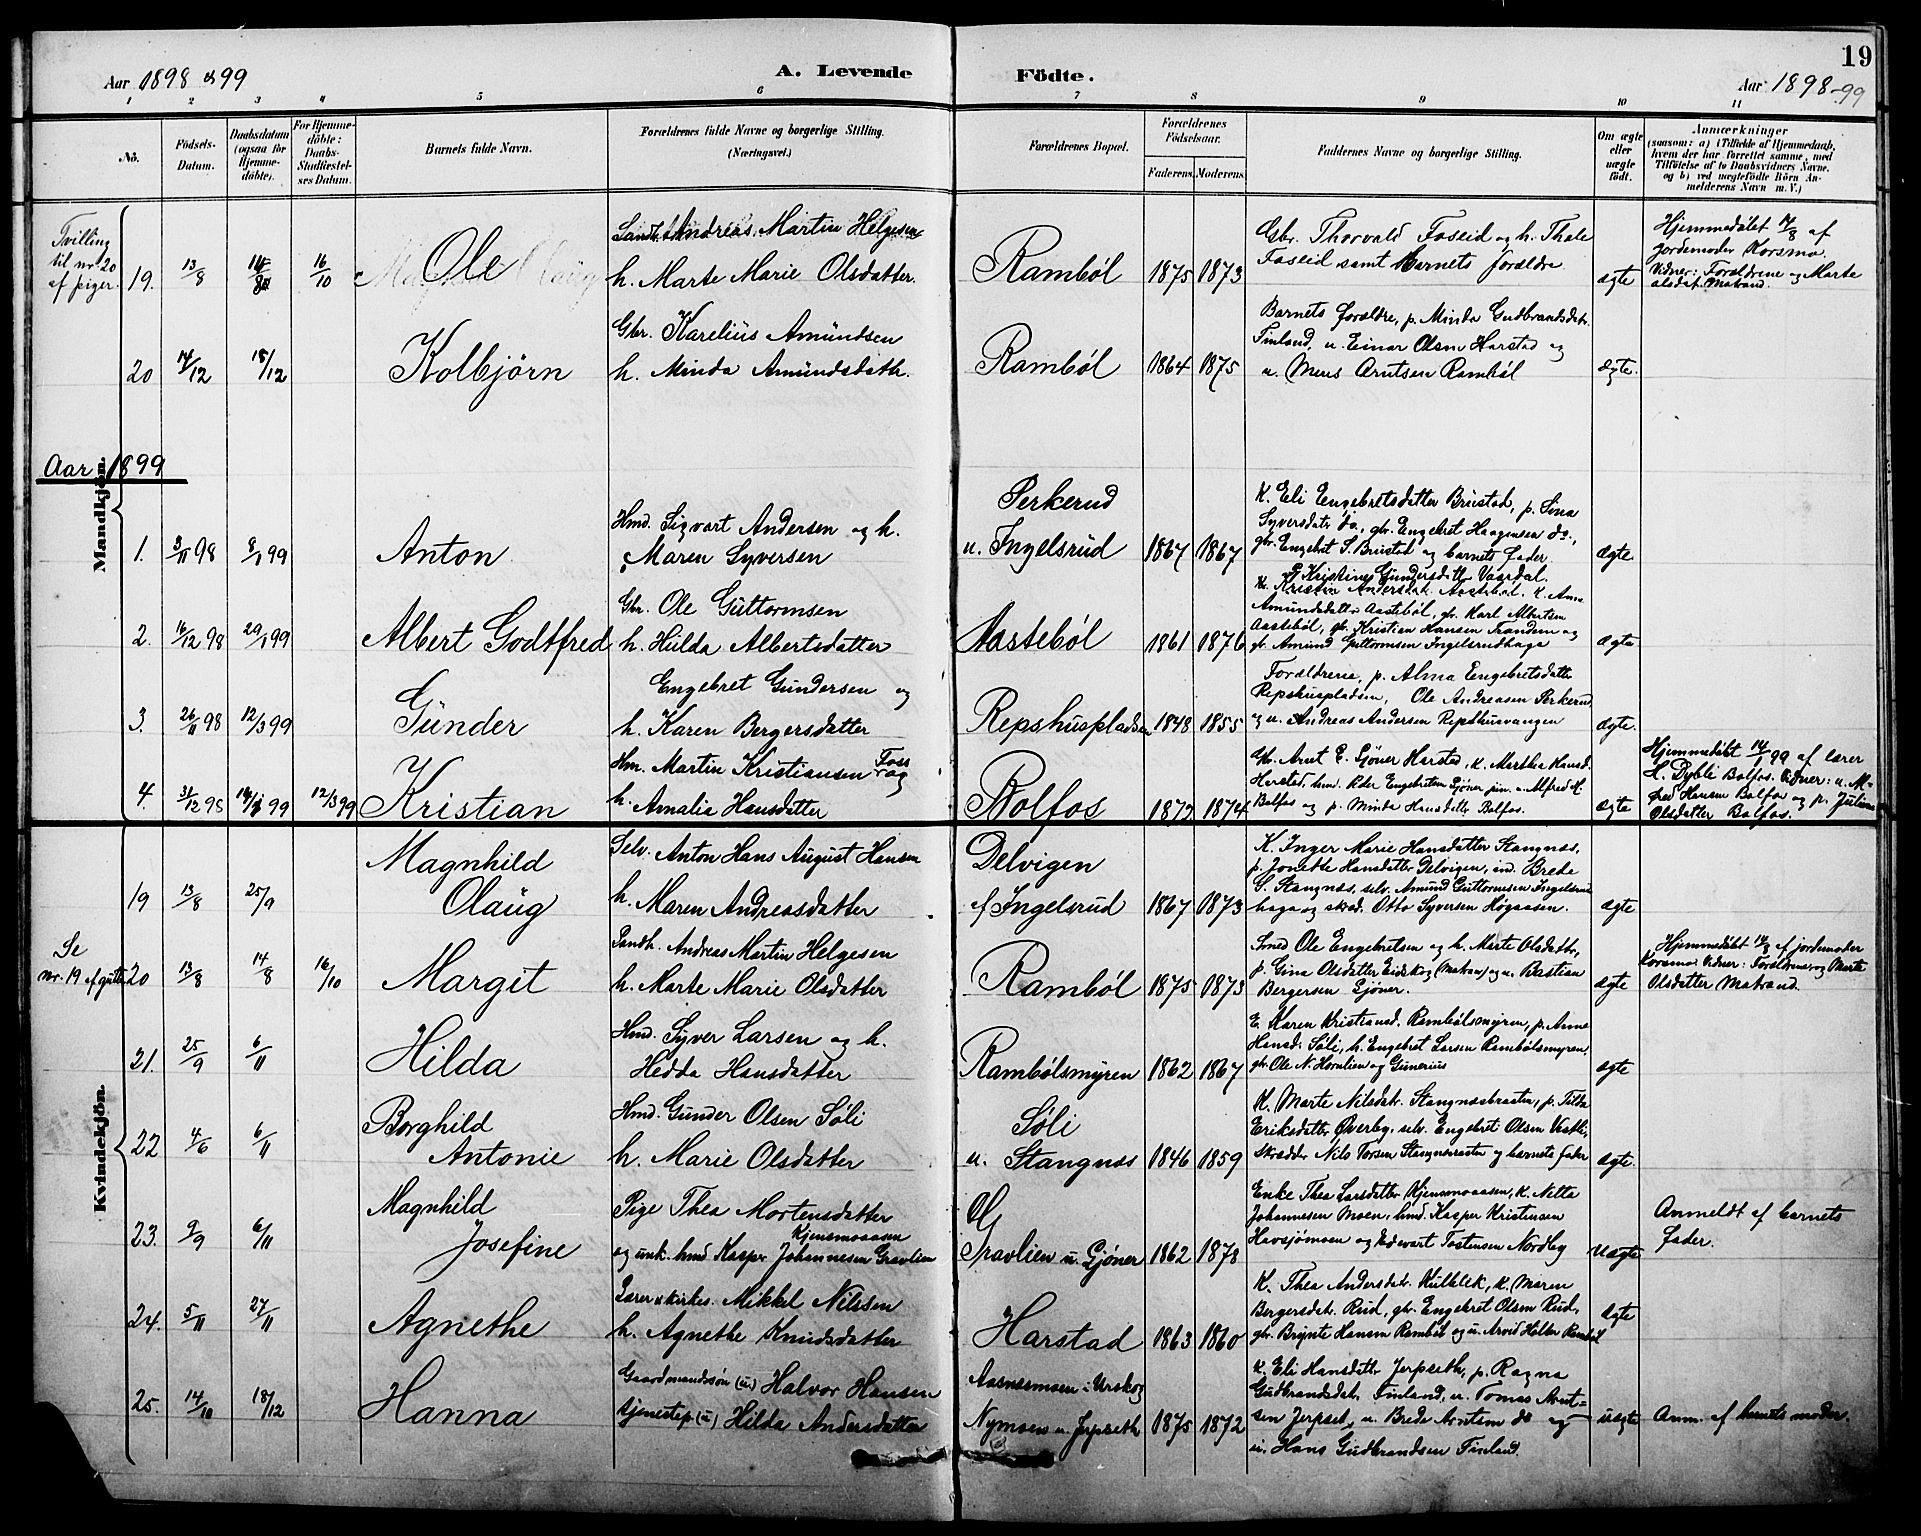 19
Aar 1898 & 99
A. Levende
Födte.
Aar 1898-99
1 2 3 4 5 6 7 8 9 10 11
No.
Födsels-Datum.
Daabsdatum (ogsaa for Hjemme-döbte).
For Hjemme-döbte: Daabs-Stadfæstel-ses Datum.
Barnets fulde Navn.
Forældrenes fulde Navne og borgerlige Stilling.
(Næringsvei.)
Forældrenes Bopæl.
Forældrenes Födselsaar.
Faderens. Moderens.
Faddernes Navne og borgerlige Stilling.
Om ægte eller uægte födt.
Anmærkninger
(saasom: a) i Tilfælde af Hjemmedaab,
hvem der har forrettet samme, med
Tilföielse af to Daabsvidners Navne,
og b) ved uægtefödte Börn An-
melderens Navn m. V.)
Tvilling
til nr 20
af piger.
19. 13/8 14/8 16/10 Ole
Landh. Andreas Martin Helgesen
h. Marte Marie Olsdatter.
Rambøl 1875 1873
Gbr. Thorvald Foseid og h. Thale
Foseid samt barnets forældre
ægte
Hjemmedøbt 14/8 af
jordemoder Korsmo.
Vidner: Forældrene og Marte
Olsdat. Matrand.
20 14/12 18/12 Kolbjörn
Gbr. Karelius Amundsen
h. Minda Amundsdatt.
Rambøl 1864 1875
Barnets forældre, p. Minda Gudbrandsdtr.
Finland, u. Einar Olsen Harstad og
u. Mens Arntsen Rambøl
ægte.
Aar 1899
Mandkjön.
1. 3/11 98 8/1 99 Anton
Hmd. Sigvart Andersen og h.
Maren Syversen
Perkerud
u. Ingelsrud 1867 1867
K. Eli Engebretsdatter Brustad, p. Lina
Syversdatr do., gbr. Engebret Haagensen do.,
gbr. Engebret S. Brustad og barnets fader
ægte
2. 16/12 98 29/1 99 Albert Godtfred
Gbr. Ole Guttormsen
h. Hulda Albertsdatter
Aastebøl 1861 1876
p. Kristine Gundersdtr Vaardal.
K. Kristin Andersdatr. Aastebøl, K. Anne
Amundsdatter Aastebøl, gbr. Karl Albertsen
Aastebøl, gbr. Kristian Hansen Trandem og
gbr Amund Guttormsen Ingelsrudhaga
ægte
3. 26/11 98 12/3 99 Gunder
Engebret Gundersen og
h. Karen Bergersdatter
Repshuspladsen 1848 1855
Forældrene, p. Alma Engebretsdatter
Repshuspladsen, Ole Andreasen Perkerud
og u. Andreas Andersen Repshusvangen
ægte.
4. 31/12 98 14/1 99 12/3 99 Kristian
Hm. Martin Kristiansen Foss og
h. Amalia Hansdatter
Bolfos 1872 1874
Gbr. Arnt E. Gjöner Harstad, k. Marthe Hansd.
Harstad, hm. Peder Engebretsen Gjöner jun. u. Alfred H.
Bolfos og p. Minda Hansdatter Bolfos.
ægte
Hjemmedöbt 14/1 99 af lærer
H. Dybli Bolfos. Vidner: u. Al-
fred Hansen Bolfos og p. Juliane
Olsdatter Bolfos.
19 13/8 25/9 Magnhild
Olaug
Selv. Anton Hans August Hansen
h. Maren Andreasdatter
Delvigen
af Ingelsrud 1867 1873
K. Inger Marie Hansdatter Stangnæs,
p. Jonette Hansdatter Delvigen, ind. Brede
S. Stangnæs, selv. Amund Guttormsen Ingelsrud-
haga og skræd. Otto Syversen Høgaasen.
ægte
Se
nr. 19 af gutter
20 13/8 14/8 16/10 Margit
Landh. Andreas Martin Helgesen
h. Marte Marie Olsdatter
Rambøl 1875 1873
Smed Ole Engebretsen og h. Marte Olsdatter,
p. Gina Olsdatter Eidskog (Matran.) og u. Bastian
Bergersen Gjöner.
ægte
Hjemmedöbt 14/8 af jordemoder
Korsmo. Vidner: Forældrene, og Marte
Olsdatter Matrand.
21. 25/9 6/11 Hilda
Hmd. Syver Larsen og h.
Hedda Hansdatter
Rambølsmyren 1862 1867
E. Karen Kristiansd. Rambølsmyren, p. Anna
Hansd. Søli, h. Engebret Larsen Rambølsmyren,
gbr. Ole N. Hornlien og Gunerius
ægte
Kvindekjön.
22 4/6 6/11 Borghild
Antonie
Hmd. Gunder Olsen Søli
h. Marie Olsdatter
Søli
u. Stangnæs 1846 1859
K. Marte Nilsdatr. Stangnæsbraaten, p. Tilda
Eriksdatter Øverby, selv. Engebret Olsen Vestli,
Skrædder Nils Torsen Stangnæsbraaten og barnets fader
ægte.
23. 9/9 6/11 Magnhild
Josefine
Pige Thea Mortensdatter
Kjensmoaasen
og unk. hmd Kasper Johannesen Gravlien
Gravlien u. Gjöner 1862 1878
Enke Thea Larsdatter Kjensmoaasen, K. Netta
Johannesen Moen, hmd. Kasper Kristensen
Havsjömoen og Edevart Tostensen Nordby
Uægte
Anmeldt af barnets
fader.
24. 5/11 27/11 Agnethe
Lærer & kirkes. Mikkel Nilssen
h. Agnethe Knudsdatter
Harstad 1863 1860
K. Thea Andersdatr. Kulblik, K. Maren
Bergersdatr. Rud, gbr. Engebret Olsen Rud,
gbr. Brynte Hansen Rambøl og u. Arvid Holter Rambøl
ægte
25. 14/10 18/12 Hanna
Gaardmandssön (u.) Halvor Hansen
tjenestep. (u.) Hilda Andersdatter
Aasnæsmoen i Urskog
Nymoen u. Jerpseth 1875 1872
K. Eli Hansdatr Jerpseth, p. Ragna
Gudbrandsdat. Finland, u. Tomas Arnt-
sen Jerpset, u. Brede Arntsen do og
u. Hans Gudbrandsen Finland.
uægte
Anm. af barnets moder.